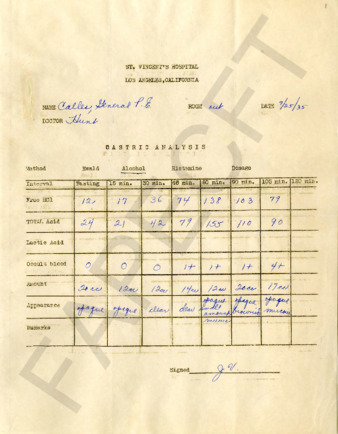 ST. VINCENT'S HOSPITAL
LOS ANGELES, CALIFORNIA
NAME Calles, General P. E. ROOM out DATE 9/25/35
DOCTOR Hunt
GASTRIC ANALYSIS
Method Ewald Alcohol Histamine Dosage
Interval Fasting 15 min. 30 min. 45 min. 60 min. 90 min. 100 min. 120 min.
Free HCl 12 17 36 74 138 103 79
Total Acid 24 21 42 79 155 110 90
Lactic Acid
Occult blood 0 0 0 1+ 1+ 1+ 4+
Amount 20cc 12cc 12cc 14cc 10cc 20cc 17cc
Appearance opaque opaque clear clear opaque opaque opaque mucus
Remarks
Signed
FAPECFT